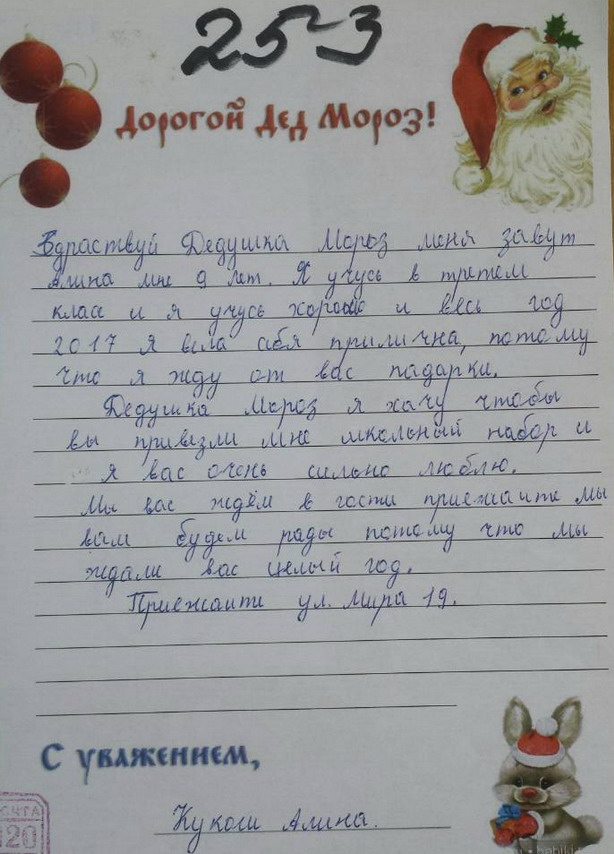 253
Дорогой Дед Мороз!
Здраствуй Дедушка Мороз меня завут
Алина мне 9 лет. Я учусь в третем
класе и я учусь хорошо и весь год
2017 я вела себя прилична, потому
что я жду от вас падарки.
Дедушка Мороз я хачу чтобы
вы привезли мне школьный набор и
я вас очень сильно люблю.
Мы вас ждём в гости приежаите мы
вам будем рады потому что мы
ждали вас целый год.
Приежаите ул. Мира 19.
С уважением,
Кукош Алина.
20